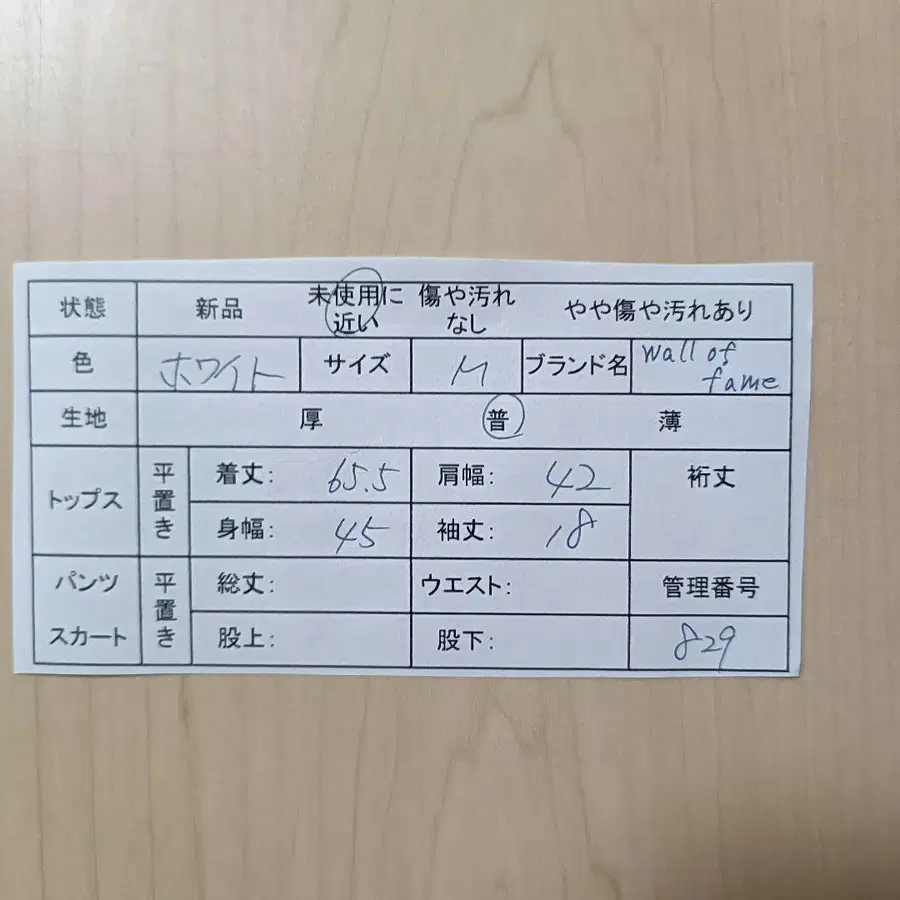 状態 新品 未使用に近い 傷や汚れなし やや傷や汚れあり
色 ホワイト サイズ M ブランド名 wall of fame
生地 厚 普 薄
トップス 平置き 着丈: 65.5 肩幅: 42 裄丈
身幅: 45 袖丈: 18
パンツ 平置き 総丈: ウエスト: 管理番号
スカート 股上: 股下: 829